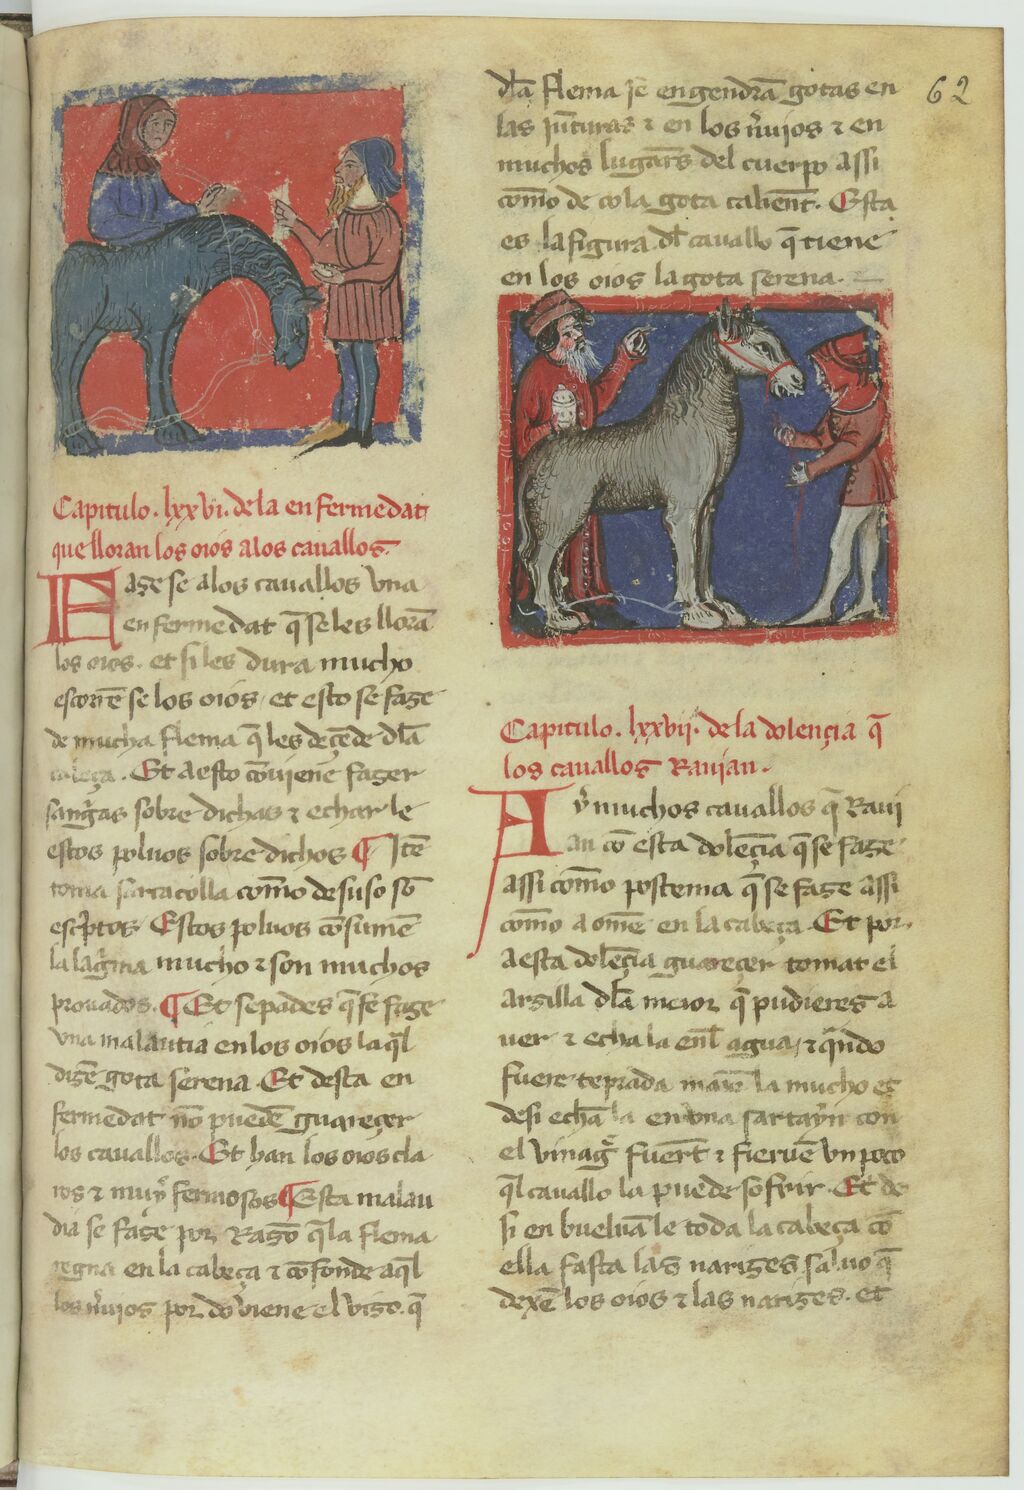 Capitulo. lxxvi. de la enfermedat
que lloran los oios a los cauallos.
Faze se a los cauallos vna
enfermedat q̄ se les llorā
los oios. et si les dura mucho
escorrē se los oios. et esto se faze
de mucha flema q̄ les deçēde dl̄a
cabeça. Et a esto cōuiene fazer
sangr̃as sobre dichas ⁊ echar le
estos poluos sobre dichos ¶ Itē
toma sarcacolla commo de suso sō
escp̃tos. Estos poluos cōsumē
la lagr̃ma mucho ⁊ son muchos
prouados. ¶ Et sepades q̄ se faze
vna malautia en los oios la ql̄
dizē gota serena. Et desta en
fermedat nō puedē guareçer
los cauallos. Et han los oios cla
ros ⁊ muy fermosos ¶ Esta malau
dia se faze por Razō q̄ la flema
regna en la cabeça ⁊ cōfonde aql̄
los ñuios por do viene el viso. q̄
dl̄a flema se engendrā gotas en
las jũturas ⁊ en los ñuios ⁊ en
muchos lugar̃s del cuerpo assi
commo de cola gota calient̄. Esta
es la figura dl̄ cauallo q̄ tiene
en los oios la gota serena.
62
Capitulo. lxxvij. de la dolençia q̄
los cauallos Rauian.
Ay muchos cauallos q̄ Raui
an cō esta dolēçia q̄ se faze
assi commo postema q̄ se faze assi
commo a omē en la cabeça. Et por
aesta dolēçia guareçer tomat el
argilla dl̄a meior q̄ pudieres a
uer ⁊ echa la enl̄ agua, ⁊ q̃ndo
fuere teprada la mucho et
desi echa la en vna sartayn con
el vinagr̃ fuert̄ ⁊ fieruē vn poco
ql̄ cauallo la puede sofrir. Et de
si enbueluā le toda la cabeça cō
ella fasta las narizes saluo q̄
dexē los oios ⁊ las narizes. et